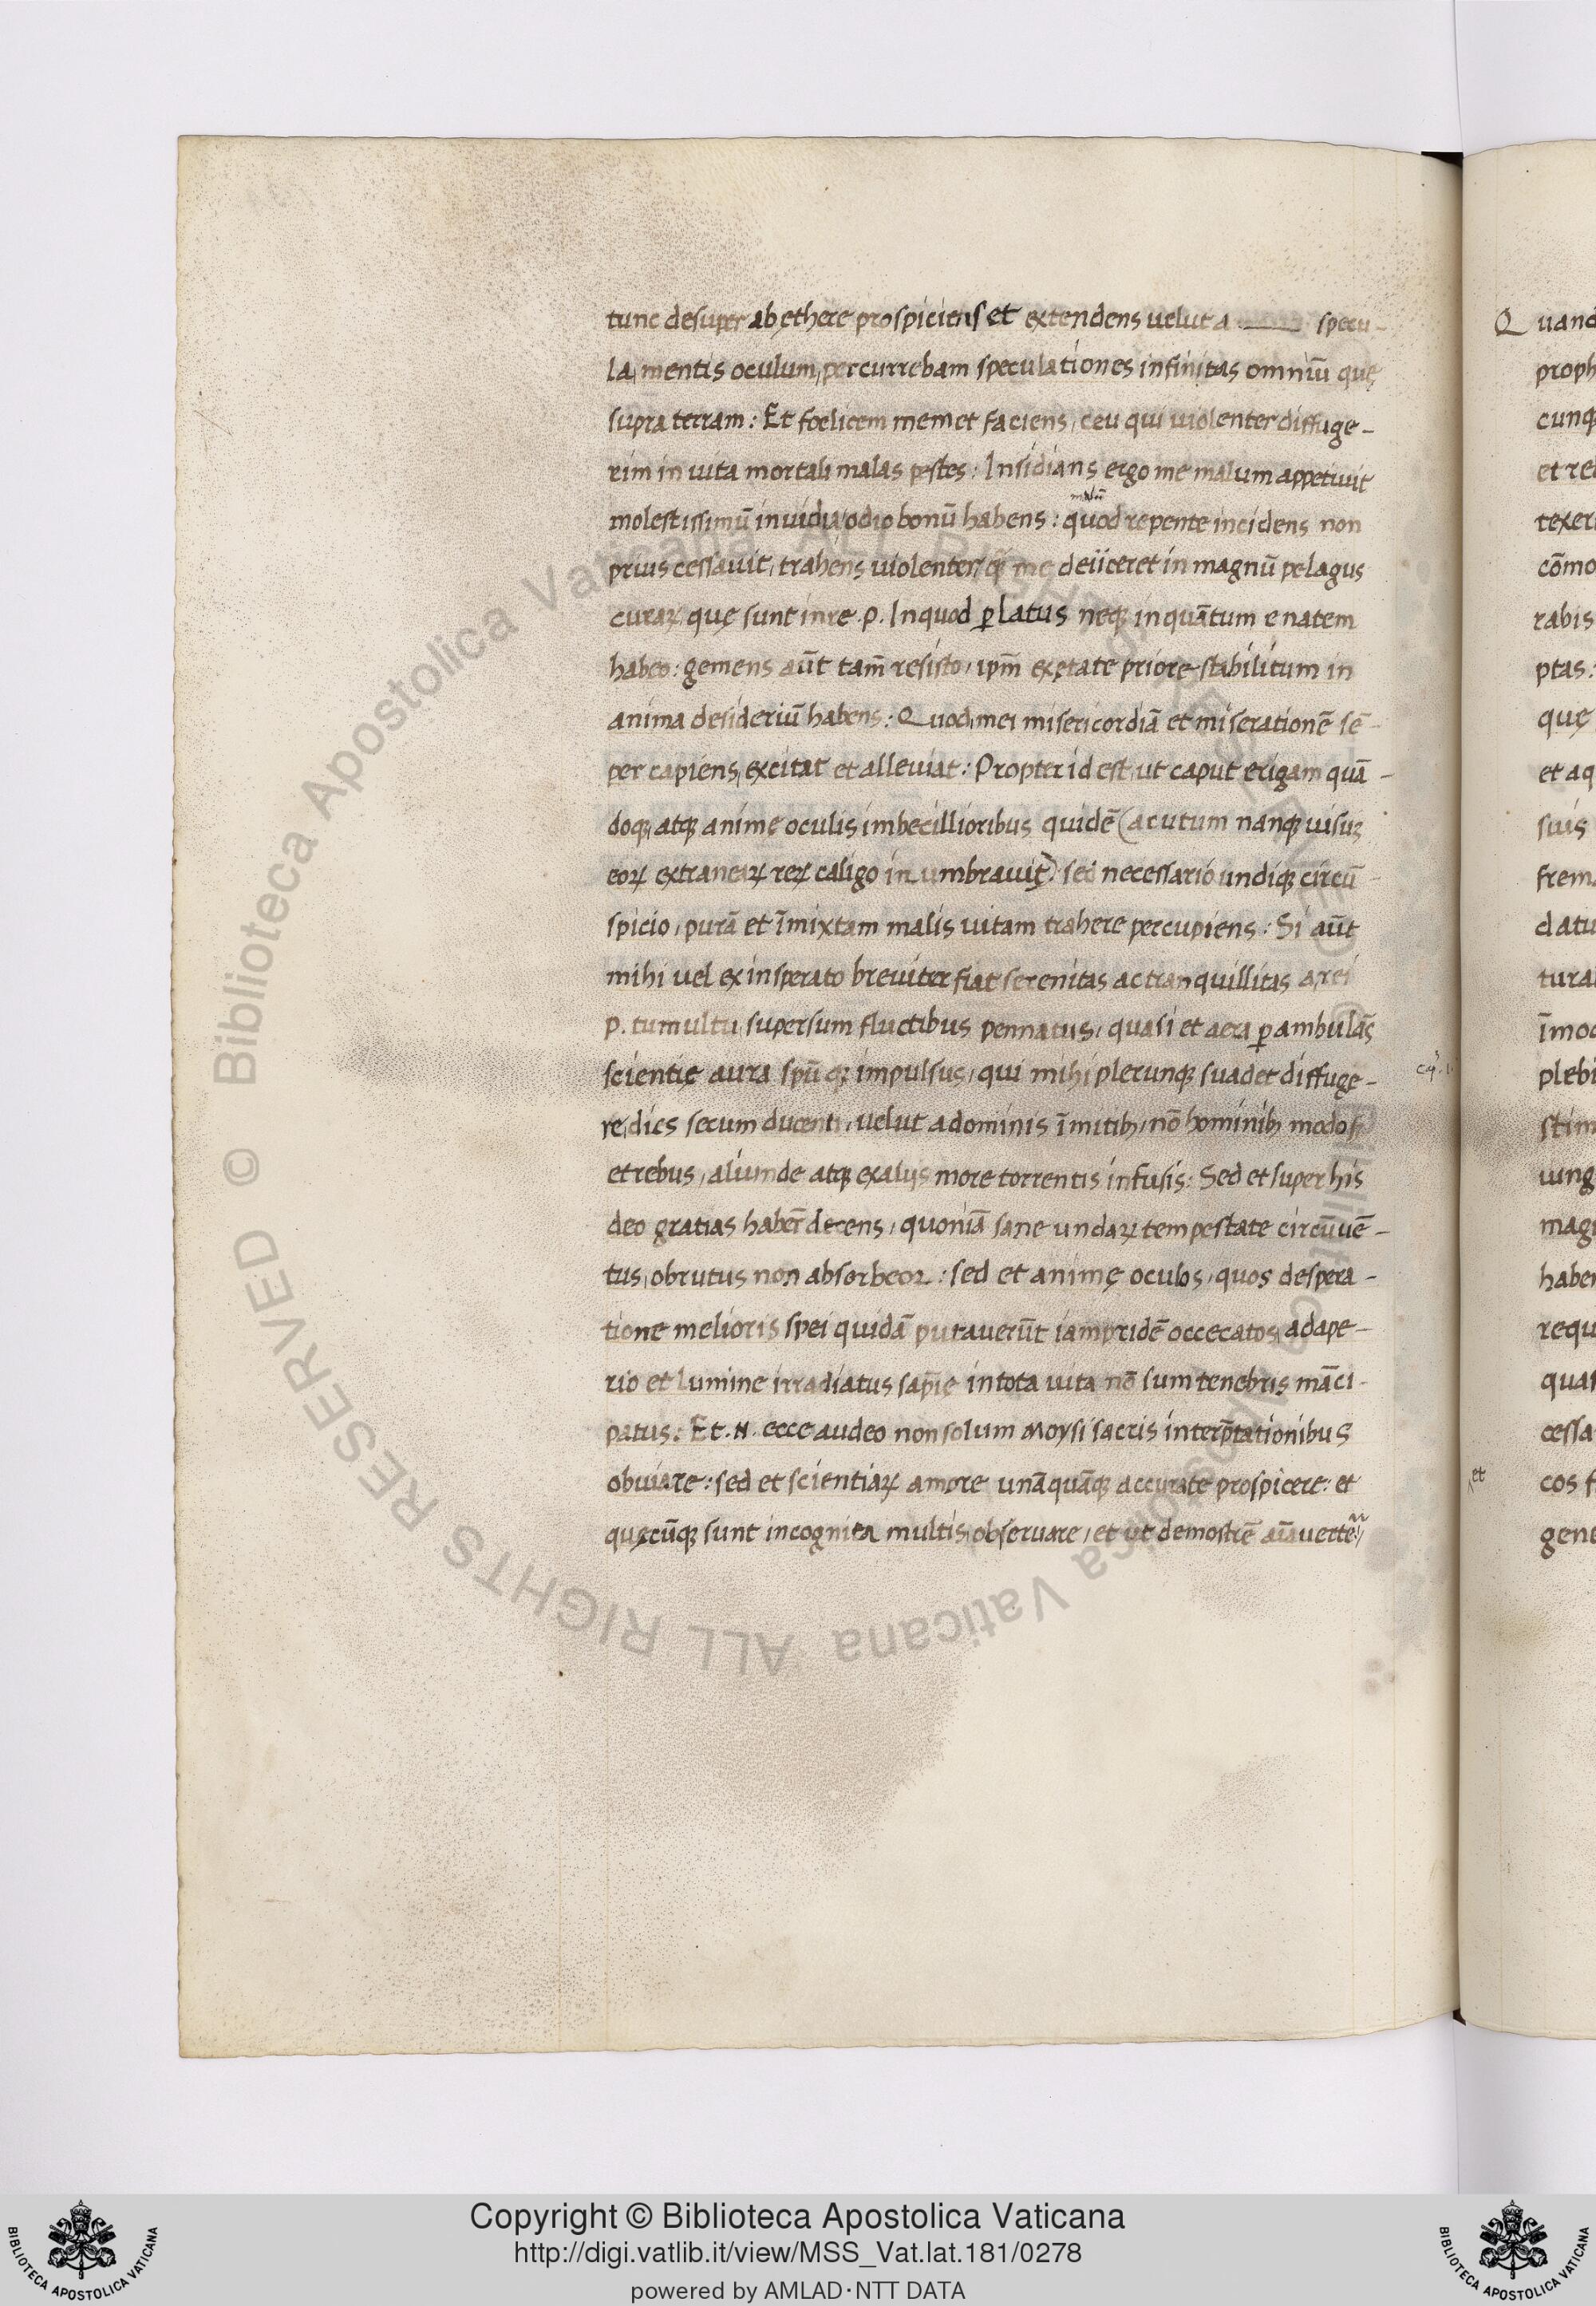 tunc desuper ab ęthere prospiciens et extendens velut a —— specu-
la, mentis oculum, percurrebam speculationes infinitas omniū quę
supra terram: Et foelicem memet faciens, ceu qui violenter diffuge-
rim in vita mortali malas pestes: Insidians ergo me malum appetivit
molestissimū invidia, odio bonū habens: quod repente incidens non
malū
prius cessavit, trahens violenter, me deiiceret in magnū pelagus
curaꝝ quę sunt in re .p. In quod ꝑlatus neqꝫ in quātum enatem
habeo: gemens aūt tam̄ resisto, ip̄m ex ętate priore stabilitum in
anima desideriū habens: Quod, mei misericordiā et miserationē sē-
per capiens, excitat et alleviat: Propter id est, ut caput erigam quā-
doqꝫ, atqꝫ animę oculis imbecillioribus quidē (acutum nanqꝫ visus
eoꝝ extraneaꝝ reꝝ caligo inumbravit) sed necessario undiqꝫ circū-
spicio, purā et īmixtam malis vitam trahere percupiens: Si aūt
mihi vel ex insperato breviter fiat serenitas ac tranquillitas a, rei
p. tumultu, supersum fluctibus pennatus, quasi et aera ꝑambulās
scientię aura spū qꝫ impulsus, qui mihi plerunqꝫ suadet diffuge-
re, dies secum ducenti, velut a dominis īmitibꝫ, nō hominibꝫ modo sꝫ
et rebus, aliunde atqꝫ ex aliis more torrentis infusis: Sed et super his
deo gratias haber̄ decens, quoniā sane undaꝝ tempestate circūvē-
tus, obrutus non absorbeor: sed et animę oculos, quos despera-
tione melioris spei quidā putaverūt iampridē occecatos, adape-
rio et lumine irradiatus sap̄ię in tota vita nō sum tenebris māci-
patus: Et .N. ecce audeo non solum Moysi sacris interp̄tationibus
obviare: sed et scientiaꝝ amore unāquāqꝫ accurate prospicere: et
quęcūqꝫ sunt incognita multis, observare, et ut demostrē
Quand
proph
cunqꝫ
et re
texer
cōmo
rabis
ptas:
quę
et aq
suis
frem
datu
tura
īmo
plebi
stim
iung
mag
habe
requ
qua
cessa
et
cos f
gene
© Biblioteca Apostolica Vaticana ALL RIGHTS RESERVED © Biblioteca Apostolica Vaticana ALL RIGHTS RESERVED
BIBLIOTECA APOSTOLICA VATICANA
Copyright © Biblioteca Apostolica Vaticana
http://digi.vatlib.it/view/MSS_Vat.lat.181/0278
powered by AMLAD·NTT DATA
BIBLIOTECA APOSTOLICA VATICANA